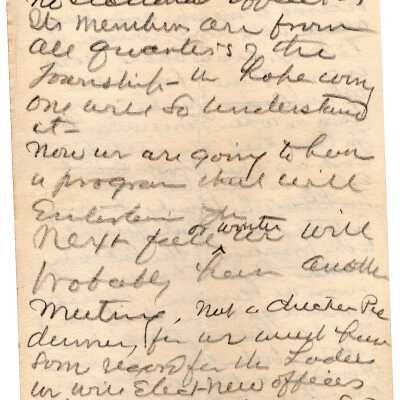 Its members are from
all quarters of the
Township - We hope every
one will so understand
it -
Now we are going to have
a program that will
Entertain
Next fall or winter we will
probably have another
Meeting, Not a Chicken Pie
dinner, for we must have
some regard for the Ladies
we will Elect new officers